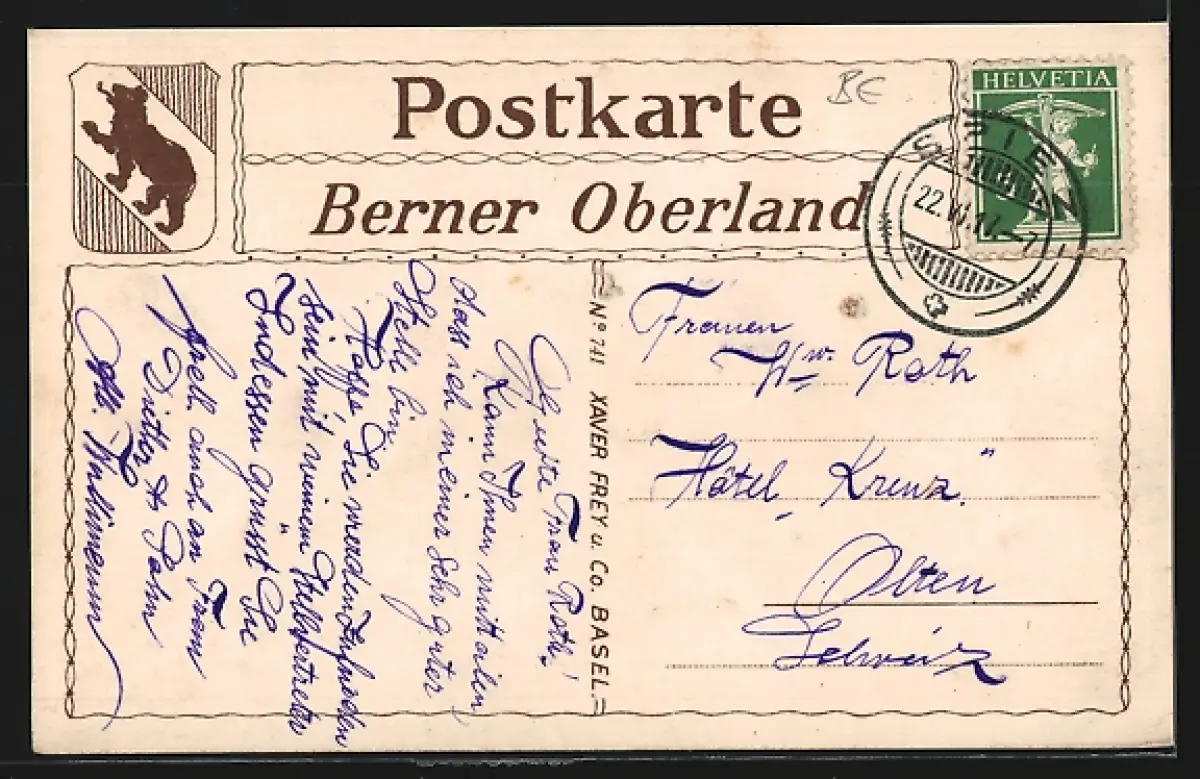 Postkarte
BE
Berner Oberland
HELVETIA
22.VI.17.–7
Nº 741 XAVER FREY u. Co. BASEL.
Frauen
Ww. Roth
Hôtel „Kreuz"
Olten
Schweiz
Gute Frau Roth!
Kann Ihnen mitteilen
dass ich in einer sehr guter
Stelle bin
Hoffe Sie werden zufrieden
sein mit meinem Stellvertreter
Indessen grüsst Sie
auch an Frau
Dietler & Sohn